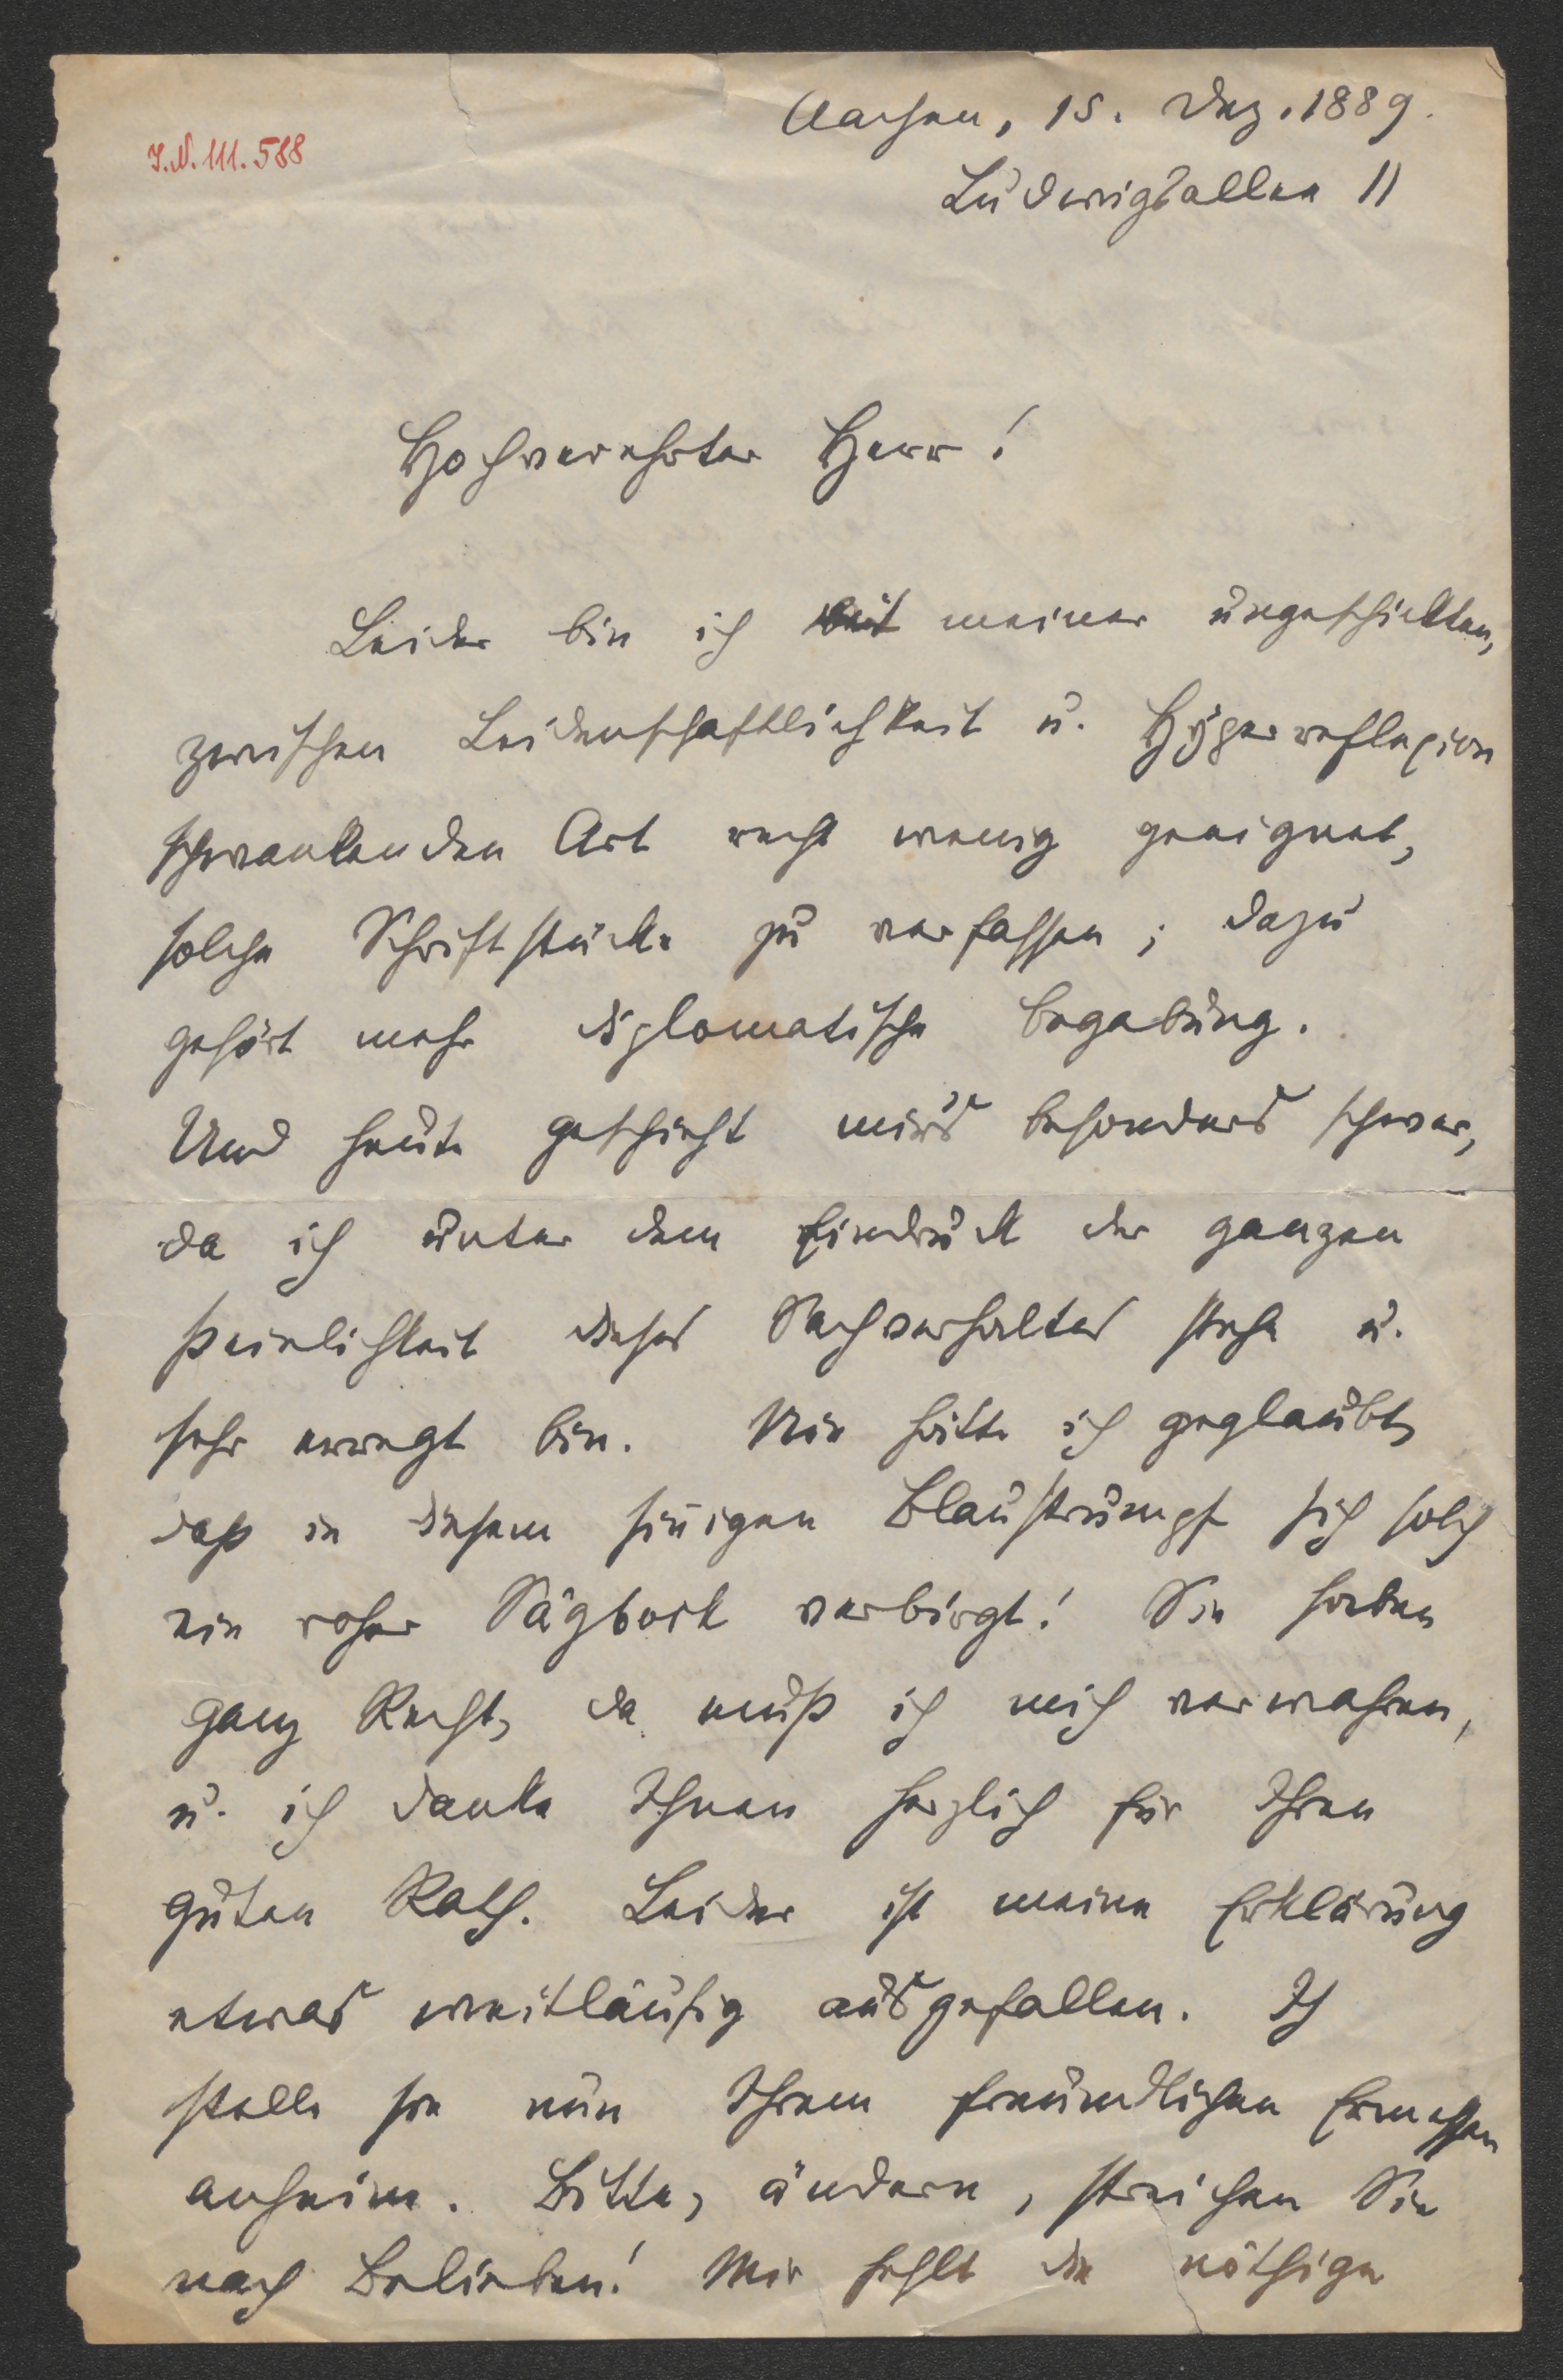 Aachen, 15. Dez. 1889.
J.N. 111.588
Ludwigsallee 11
Hochverehrter Herr!
Leider bin ich bei meiner ungeschickten,
zwischen Leidenschaftlichkeit u. Hyperreflexion
schwankenden Art recht wenig geeignet,
solche Schriftstücke zu verfassen; dazu
gehört mehr diplomatische Begabung.
Und heute geschieht mirs besonders schwer,
da ich unter dem Eindruck der ganzen
Peinlichkeit dieses Sachverhaltes stehe u.
sehr erregt bin. Nie hätte ich geglaubt,
daß in diesem sinnigen Blaustrumpf sich solch
ein roher Sägbock verbirgt! Sie haben
ganz Recht, da muß ich mich verwahren,
u. ich danke Ihnen herzlich für Ihren
guten Rath. Leider ist meine Erklärung
etwas weitläufig ausgefallen. Ich
stelle sie nun Ihrem freundlichen Ermessen
anheim. Bitte, ändern, streichen Sie
nach Belieben! Mir fehlt die nöthige